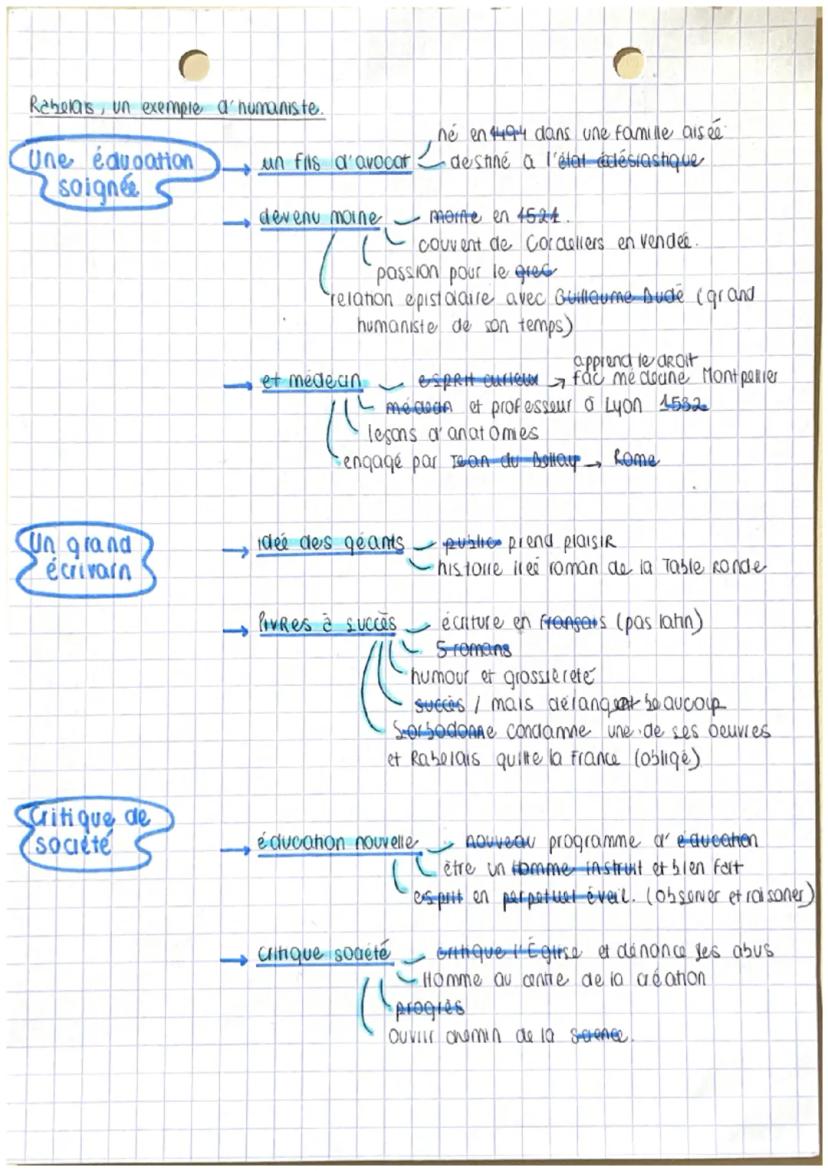 Rabelais, un exemple d'humaniste.
Une éducation soignée
→ un fils d'avocat
né en 1494 dans une famille aisée
destiné à l'état éclésiastique
→ devenu moine
moine en 1521.
couvent de Cordeliers en vendée.
passion pour le grec
relation epistolaire avec Guillaume Budé (grand
humaniste de son temps)
→ et médecin
esprit curieux → apprend le droit
fac médecine Montpellier
médecin et professeur à Lyon 1532
leçons d'anatomies
engagé par Jean du Bellay → Rome
Un grand écrivain
→ idée des géants
public prend plaisir
histoire liée roman de la Table Ronde
→ livres à succès
écriture en français (pas latin)
5 romans
humour et grossièreté
succès / mais dérangent beaucoup
Sorbodonne condamne une de ses oeuvres
et Rabelais quitte la France (obligé)
Critique de société
→ éducation nouvelle
nouveau programme d'éducation
être un homme instruit et bien fait
esprit en perpetuel éveil. (observer et raisoner)
→ critique société
critique l'Église et dénonce ses abus
Homme au centre de la création
progrès
ouvrir chemin de la science.